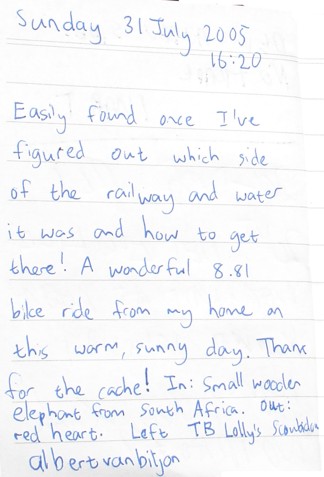 Sunday 31 July 2005
16:20
Easily found once I've
figured out which side
of the railway and water
it was and how to get
there! A wonderful 8.81
bike ride from my home on
this warm, sunny day. Thanks
for the cache! In: Small wooden
elephant from South Africa. Out:
red heart. Left TB Lolly's Scoubidou
albertvanbiljon